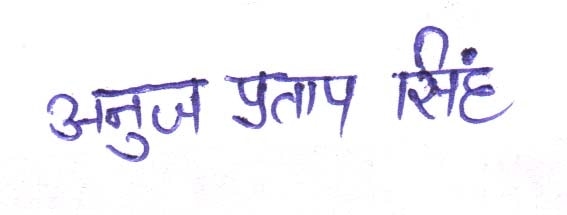 अनुज प्रताप सिंह